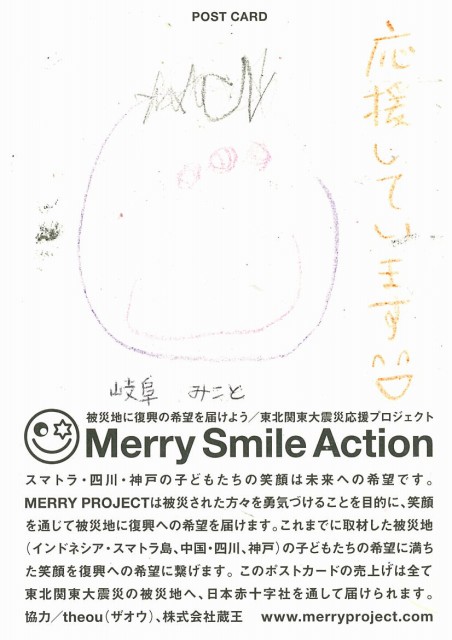 POST CARD
応援しています
岐阜 みこと
被災地に復興の希望を届けよう／東北関東大震災応援プロジェクト
Merry Smile Action
スマトラ・四川・神戸の子どもたちの笑顔は未来への希望です。
MERRY PROJECTは被災された方々を勇気づけることを目的に、笑顔
を通じて被災地に復興への希望を届けます。これまでに取材した被災地
（インドネシア・スマトラ島、中国・四川、神戸）の子どもたちの希望に満ち
た笑顔を復興への希望に繋げます。このポストカードの売上げは全て
東北関東大震災の被災地へ、日本赤十字社を通して届けられます。
協力／theou（ザオウ）、株式会社蔵王 www.merryproject.com